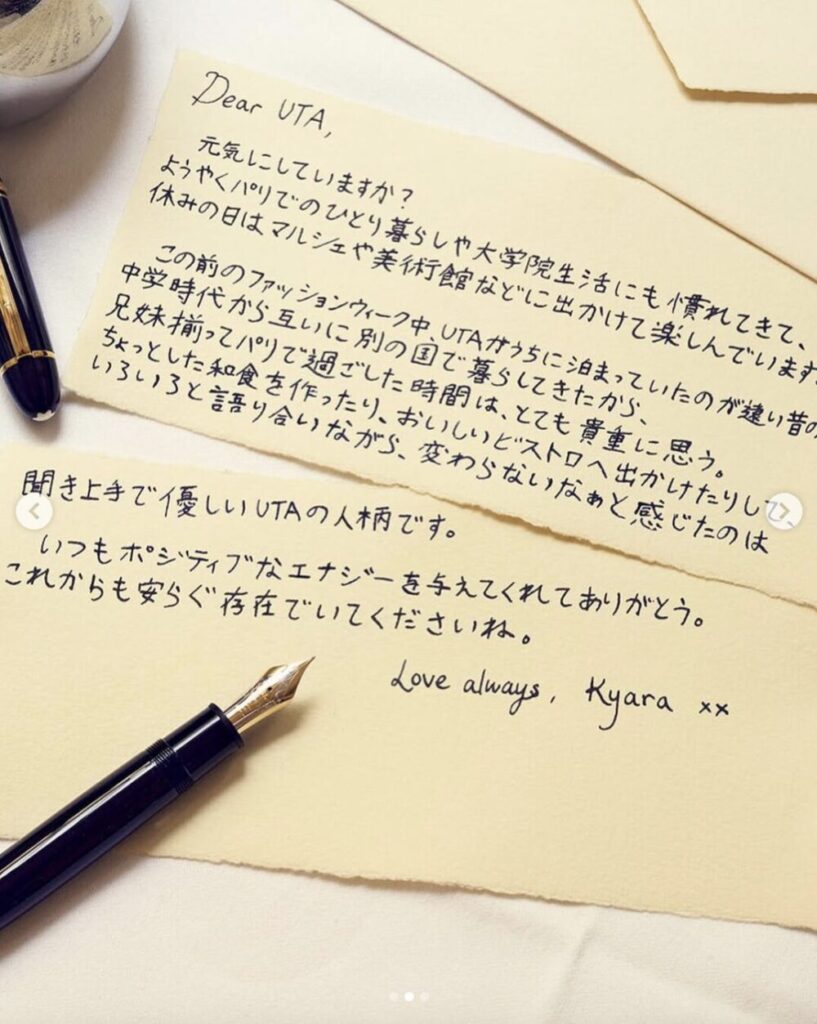 Dear UTA,
元気にしていますか?
ようやくパリでのひとり暮らしや大学院生活にも慣れてきて、
休みの日はマルシェや美術館などに出かけて楽しんでいます。
この前のファッションウィーク中、UTAがうちに泊まっていたのが遠い昔の
中学時代から互いに別の国で暮らしてきたから、
兄妹揃ってパリで過ごした時間は、とても貴重に思う。
ちょっとした和食を作ったり、おいしいビストロへ出かけたりして、
いろいろと語り合いながら、変わらないなぁと感じたのは
聞き上手で優しいUTAの人柄です。
いつもポジティブなエナジーを与えてくれてありがとう。
これからも安らぐ存在でいてくださいね。
Love always, Kyara xx